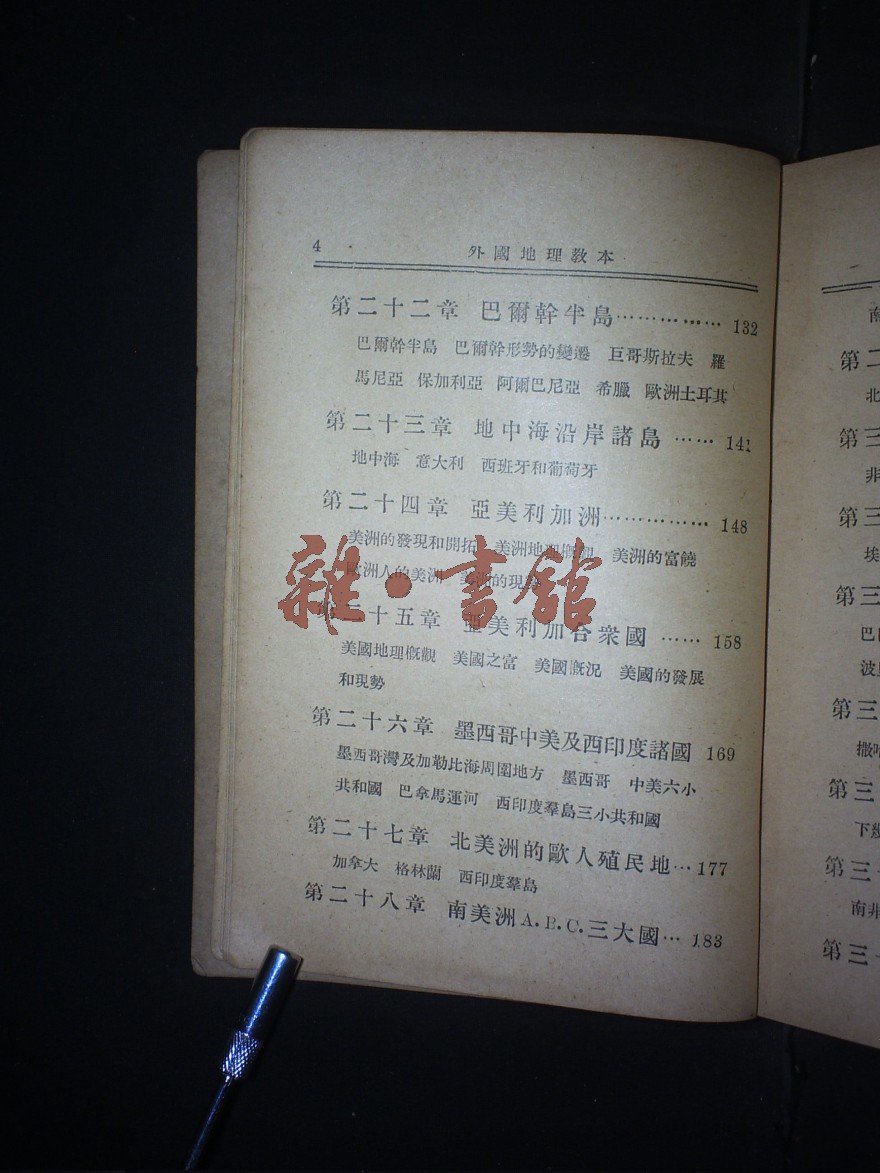 4
外國地理教本
第二十二章 巴爾幹半島…………… 132
巴爾幹半島 巴爾幹形勢的變遷 巨哥斯拉夫 羅
馬尼亞 保加利亞 阿爾巴尼亞 希臘 歐洲土耳其
第二十三章 地中海沿岸諸島…… 141
地中海 意大利 西班牙和葡萄牙
第二十四章 亞美利加洲……………… 148
美洲的發現和開拓 美洲地理概觀 美洲的富饒
歐洲人的美洲 美洲的現勢
雜·書館
第二十五章 亞美利加合衆國…… 158
美國地理概觀 美國之富 美國概況 美國的發展
和現勢
第二十六章 墨西哥中美及西印度諸國 169
墨西哥灣及加勒比海周圍地方 墨西哥 中美六小
共和國 巴拿馬運河 西印度羣島三小共和國
第二十七章 北美洲的歐人殖民地… 177
加拿大 格林蘭 西印度羣島
第二十八章 南美洲A.B.C.三大國… 183
南
第二
北
第三
非
第三
埃
第三
巴
波
第三
撒哈
第三
下
第三
南非
第三